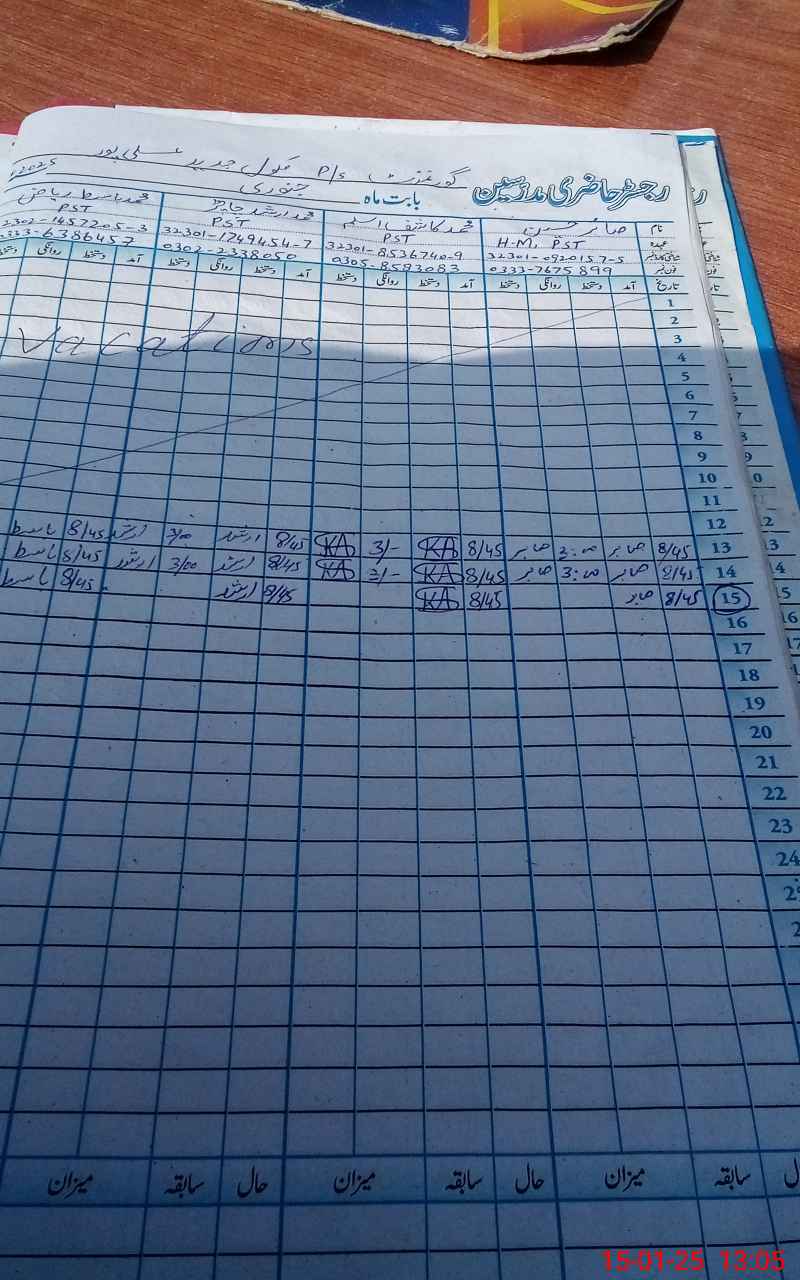 گورنمنٹ P/s سکول جدید علی پور
رجسٹر حاضری مدرسین بابت ماہ جنوری 2025
نام صابر حسین محمد کاشف اسلم محمد ارشد جاوید محمد باسط ریاض
عہدہ H.M, PST PST PST PST
شناختی کارڈ نمبر 32301-0920157-5 32301-8536740-9 32301-1249454-7 2302-1457205-3
فون نمبر 0333-7675899 0305-8593083 0302-2338050 333-6386457
تاریخ آمد دستخط روانگی دستخط آمد دستخط روانگی دستخط آمد دستخط روانگی دستخط آمد دستخط
1
2
3
Vacations
4
5
6
7
8
9
10
11
12
13 8/45 صابر 3:00 صابر 8/45 KA 3/- KA 8/45 ارشد 3/00 ارشد 8/45 باسط
14 8/45 صابر 3:00 صابر 8/45 KA 3/- KA 8/45 ارشد 3/00 ارشد 8/45 باسط
15 8/45 صابر 8/45 KA 8/45 ارشد 8/45 باسط
16
17
18
19
20
21
22
23
24
سابقہ میزان حال سابقہ میزان حال سابقہ میزان
15-01-25 13:05